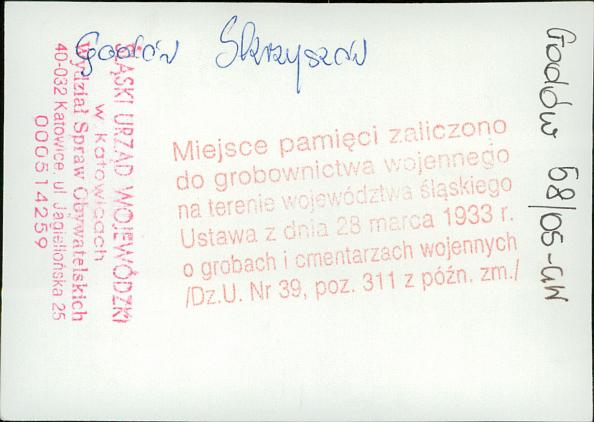 Godów Skrzyszów
Miejsce pamięci zaliczono
do grobownictwa wojennego
na terenie województwa śląskiego
Ustawa z dnia 28 marca 1933 r.
o grobach i cmentarzach wojennych
/Dz.U. Nr 39, poz. 311 z późn. zm./
ŚLĄSKI URZĄD WOJEWÓDZKI
w Katowicach
Wydział Spraw Obywatelskich
40-032 Katowice, ul. Jagiellońska 25
000514259
Godów 58/05-GW